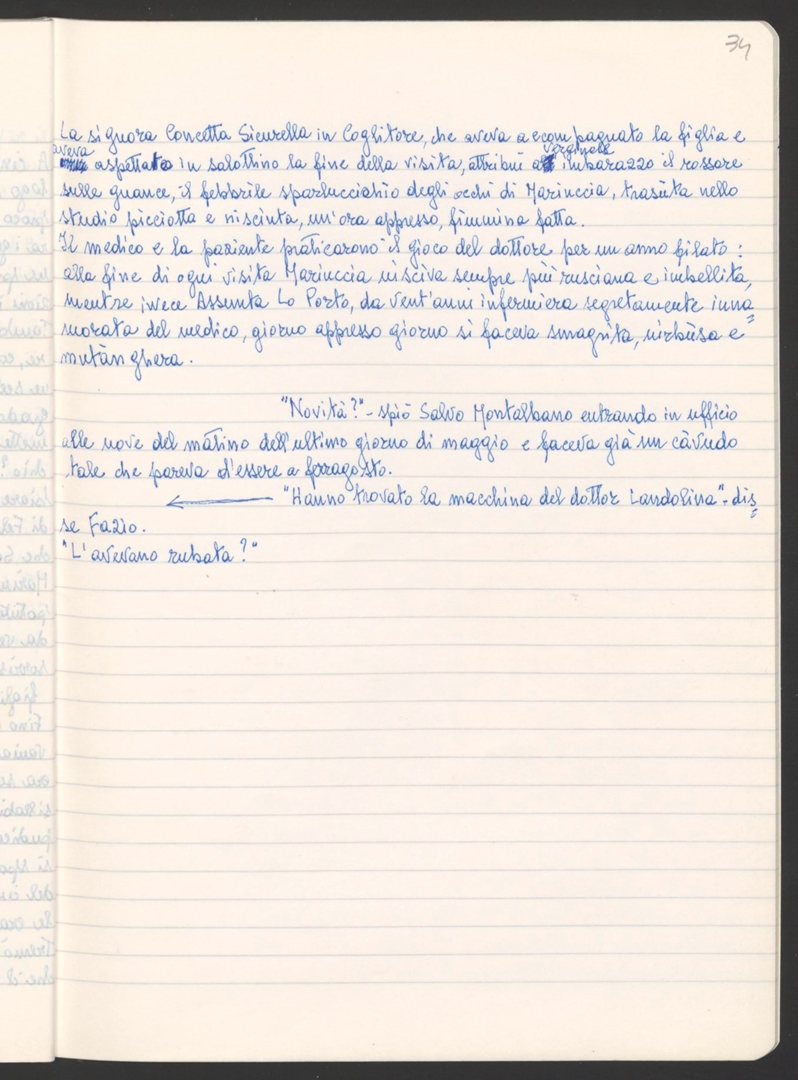 34
La signora Concetta Sicurella in Coglitore, che aveva accompagnato la figlia e
aveva aspettato in salottino la fine della visita, attribuì a verginale imbarazzo il rossore
sulle guance, il febbrile sparluccichio degli occhi di Mariuccia, trasuta nello
studio picciotta e nisciuta, un'ora appresso, fimmina fatta.
Il medico e la paziente praticarono il gioco del dottore per un anno filato:
alla fine di ogni visita Mariuccia nisciva sempre più rusciana e imbellita,
mentre invece Assunta Lo Porto, da vent'anni infermiera segretamente inna=
morata del medico, giorno appresso giorno si faceva smagrita, nirbùsa e
mutànghera.
"Novità?" - spiò Salvo Montalbano entrando in ufficio
alle nove del matino dell'ultimo giorno di maggio e faceva già un càvudo
tale che pareva d'essere a ferragosto.
"Hanno trovato la macchina del dottor Landolina" - dis=
se Fazio.
"L'avevano rubata?"